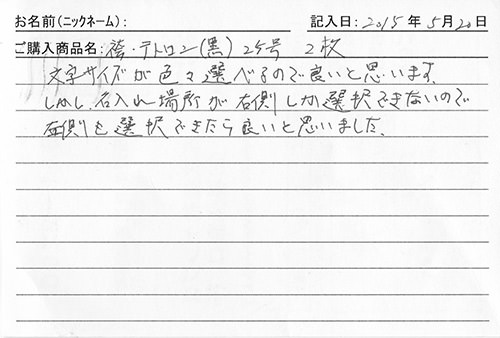 お名前(ニックネーム): 記入日: 2015 年 5 月 20 日
ご購入商品名: 袴・テトロン(黒) 25号 2枚
文字サイズが色々選べるので良いと思います。
しかし、名入れ場所が右側しか選択できないので
左側も選択できたら良いと思いました。